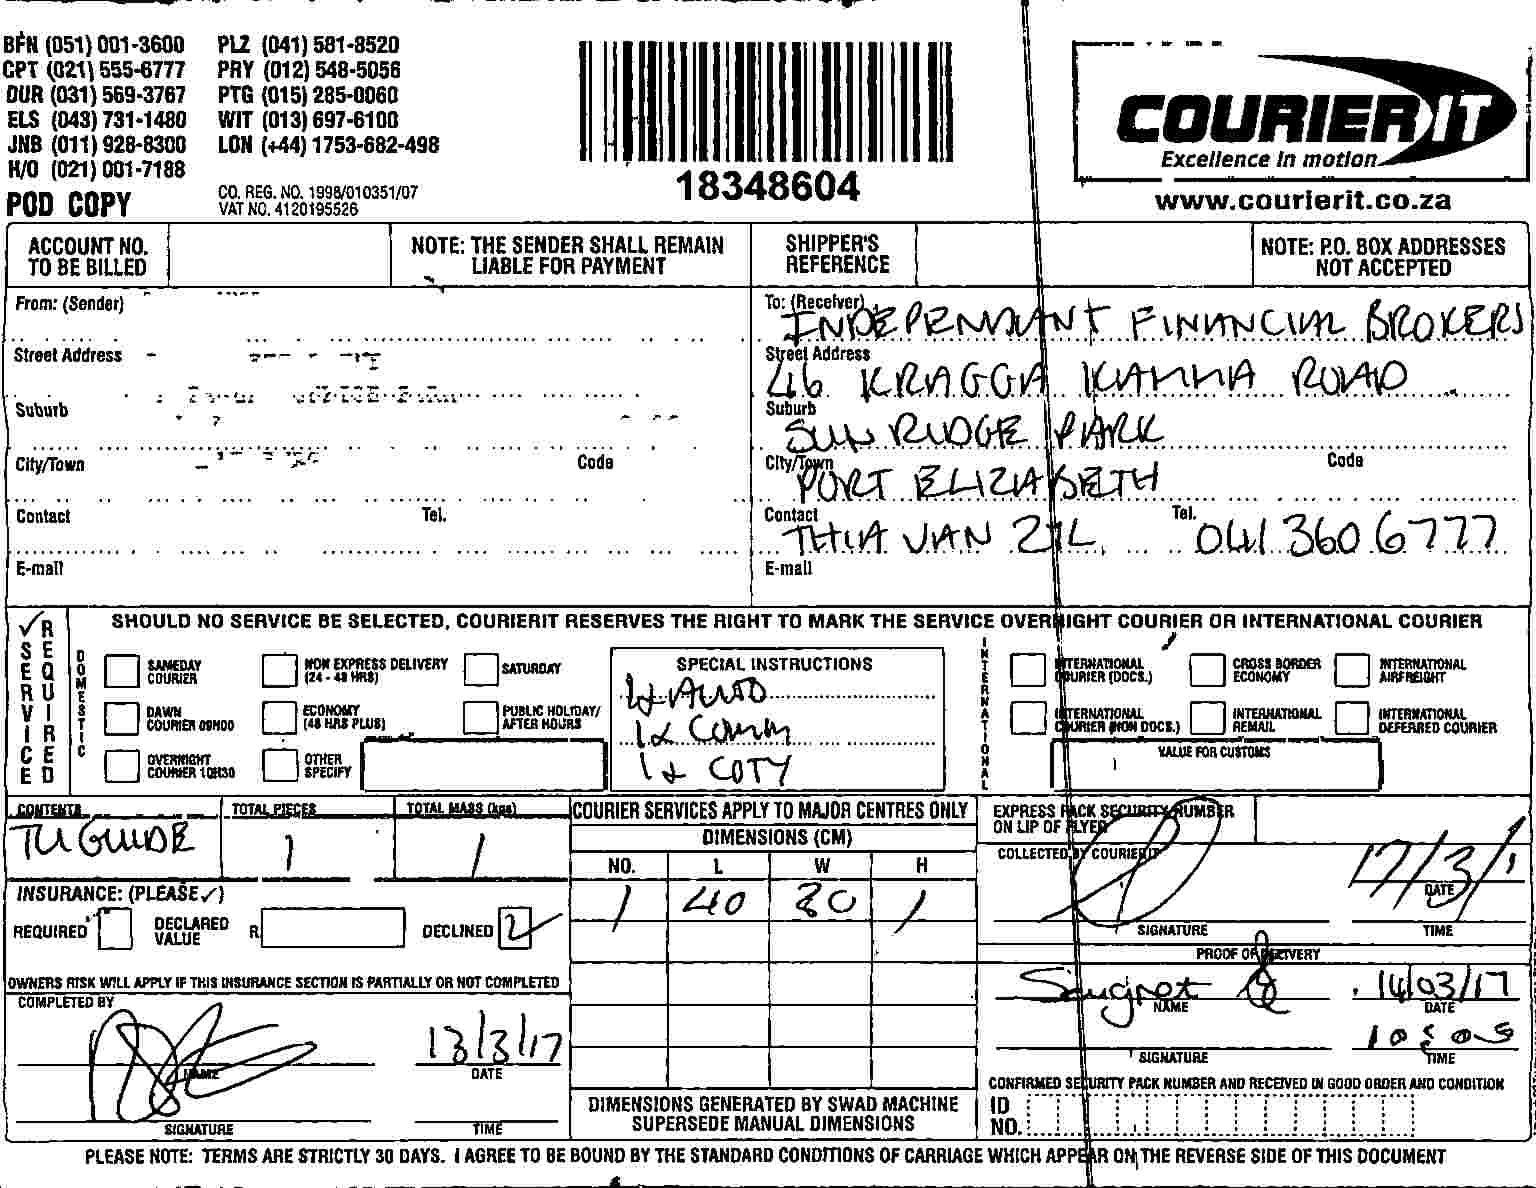 BFN (051) 001-3600 PLZ (041) 581-8520
CPT (021) 555-6777 PRY (012) 548-5056
DUR (031) 569-3767 PTG (015) 285-0060
ELS (043) 731-1480 WIT (013) 697-6100
JNB (011) 928-8300 LON (+44) 1753-682-498
H/O (021) 001-7188
POD COPY
CO. REG. NO. 1998/010351/07
VAT NO. 4120195526
18348604
COURIER IT
Excellence in motion
www.courierit.co.za
ACCOUNT NO. TO BE BILLED
NOTE: THE SENDER SHALL REMAIN LIABLE FOR PAYMENT
SHIPPER'S REFERENCE
NOTE: P.O. BOX ADDRESSES NOT ACCEPTED
From: (Sender)
Street Address
Suburb
City/Town Code
Contact Tel.
E-mail
To: (Receiver) INDEPENDANT FINANCIAL BROKERS
Street Address 46 KRAGGA KAMMA ROAD
Suburb SUN RIDGE PARK
City/Town PORT ELIZABETH Code
Contact THIA VAN ZYL Tel. 041 360 6777
E-mail
SERVICE REQUIRED
SHOULD NO SERVICE BE SELECTED, COURIERIT RESERVES THE RIGHT TO MARK THE SERVICE OVERNIGHT COURIER OR INTERNATIONAL COURIER
DOMESTIC
SAMEDAY COURIER
NON EXPRESS DELIVERY (24 - 48 HRS)
SATURDAY
DAWN COURIER 09H00
ECONOMY (48 HRS PLUS)
PUBLIC HOLIDAY/ AFTER HOURS
OVERNIGHT COURIER 10H30
OTHER SPECIFY
SPECIAL INSTRUCTIONS
1x AUTO
1x COMM
1x COTY
INTERNATIONAL
INTERNATIONAL COURIER (DOCS.)
CROSS BORDER ECONOMY
INTERNATIONAL AIRFREIGHT
INTERNATIONAL COURIER (NON DOCS.)
INTERNATIONAL REMAIL
INTERNATIONAL DEFERRED COURIER
VALUE FOR CUSTOMS
CONTENTS TOTAL PIECES TOTAL MASS (kgs)
TU GUIDE 1 1
INSURANCE: (PLEASE ✓)
REQUIRED DECLARED VALUE R DECLINED
OWNERS RISK WILL APPLY IF THIS INSURANCE SECTION IS PARTIALLY OR NOT COMPLETED
COMPLETED BY
13/3/17
NAME DATE
SIGNATURE TIME
COURIER SERVICES APPLY TO MAJOR CENTRES ONLY
DIMENSIONS (CM)
NO. L W H
1 40 30 1
DIMENSIONS GENERATED BY SWAD MACHINE
SUPERSEDE MANUAL DIMENSIONS
EXPRESS PACK SECURITY NUMBER
ON LIP OF FLYER
COLLECTED BY COURIERIT
17/3/1
DATE
SIGNATURE TIME
PROOF OF DELIVERY
14/03/17
NAME DATE
10:05
SIGNATURE TIME
CONFIRMED SECURITY PACK NUMBER AND RECEIVED IN GOOD ORDER AND CONDITION
ID NO.
PLEASE NOTE: TERMS ARE STRICTLY 30 DAYS. I AGREE TO BE BOUND BY THE STANDARD CONDITIONS OF CARRIAGE WHICH APPEAR ON THE REVERSE SIDE OF THIS DOCUMENT